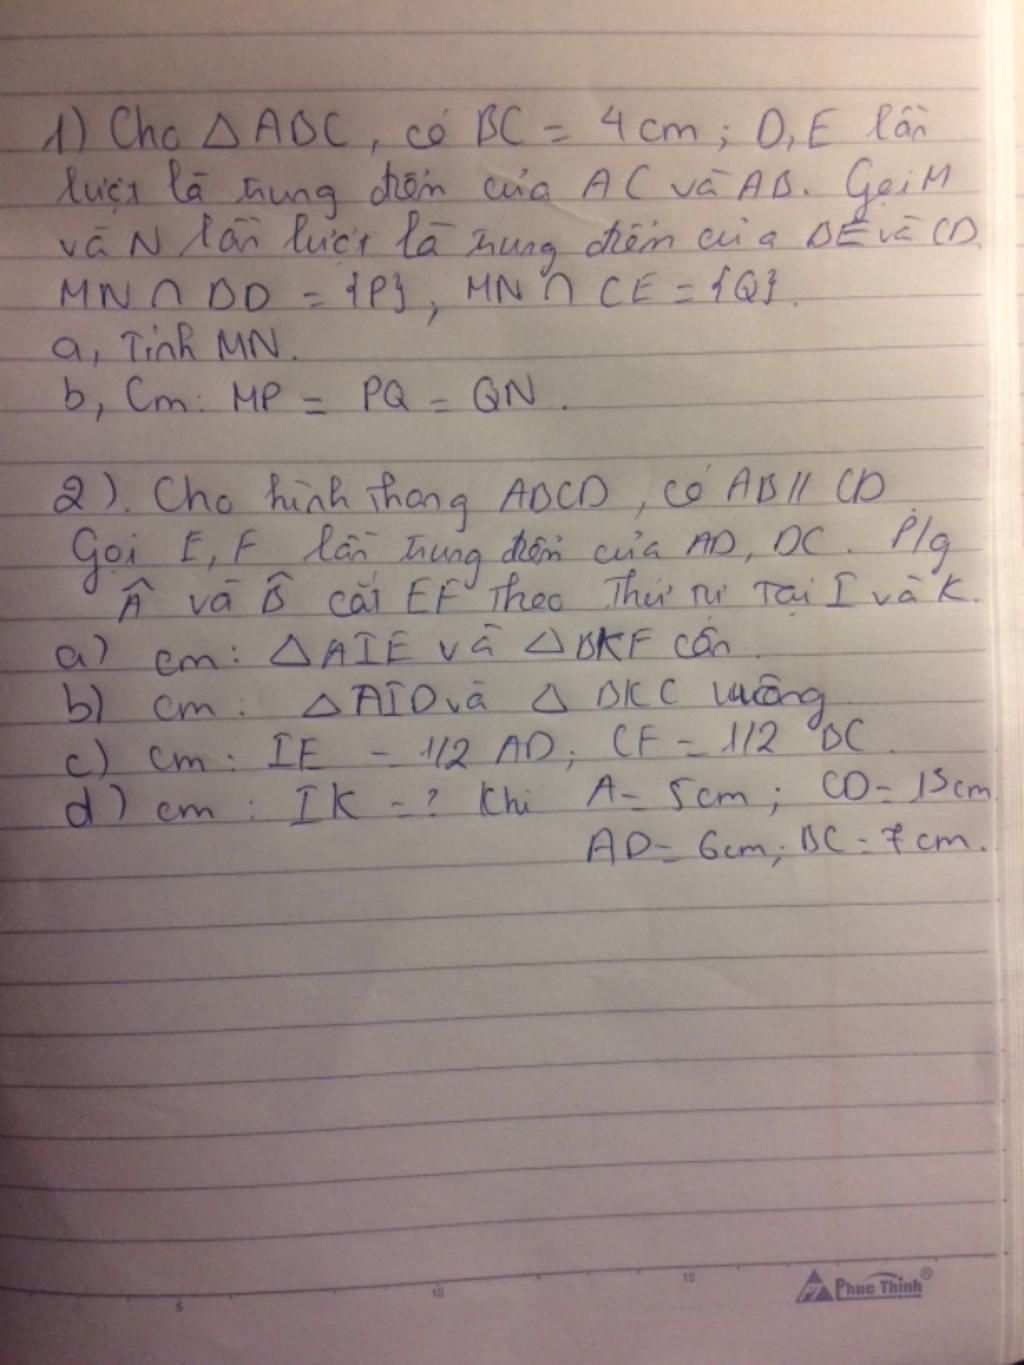 1) Cho △ABC, có BC = 4cm; D, E lần
lượt là trung điểm của AC và AB. Gọi M
và N lần lượt là trung điểm của BE và CD.
MN ∩ BD = {P}, MN ∩ CE = {Q}.
a, Tính MN.
b, Cm: MP = PQ = QN.
2). Cho hình thang ABCD, có AB // CD
Gọi E, F lần trung điểm của AD, BC. P/g
Â và B̂ cắt EF theo thứ tự tại I và K.
a) cm: △AIE và △BKF cân.
b) cm: △AID và △ BKC vuông
c) cm: IE = 1/2 AD; CF = 1/2 BC.
d) cm: IK = ? Khi A = 5cm; CD = 15cm
AD = 6cm; BC = 7cm.
5 10 15
Phuc Thinh®